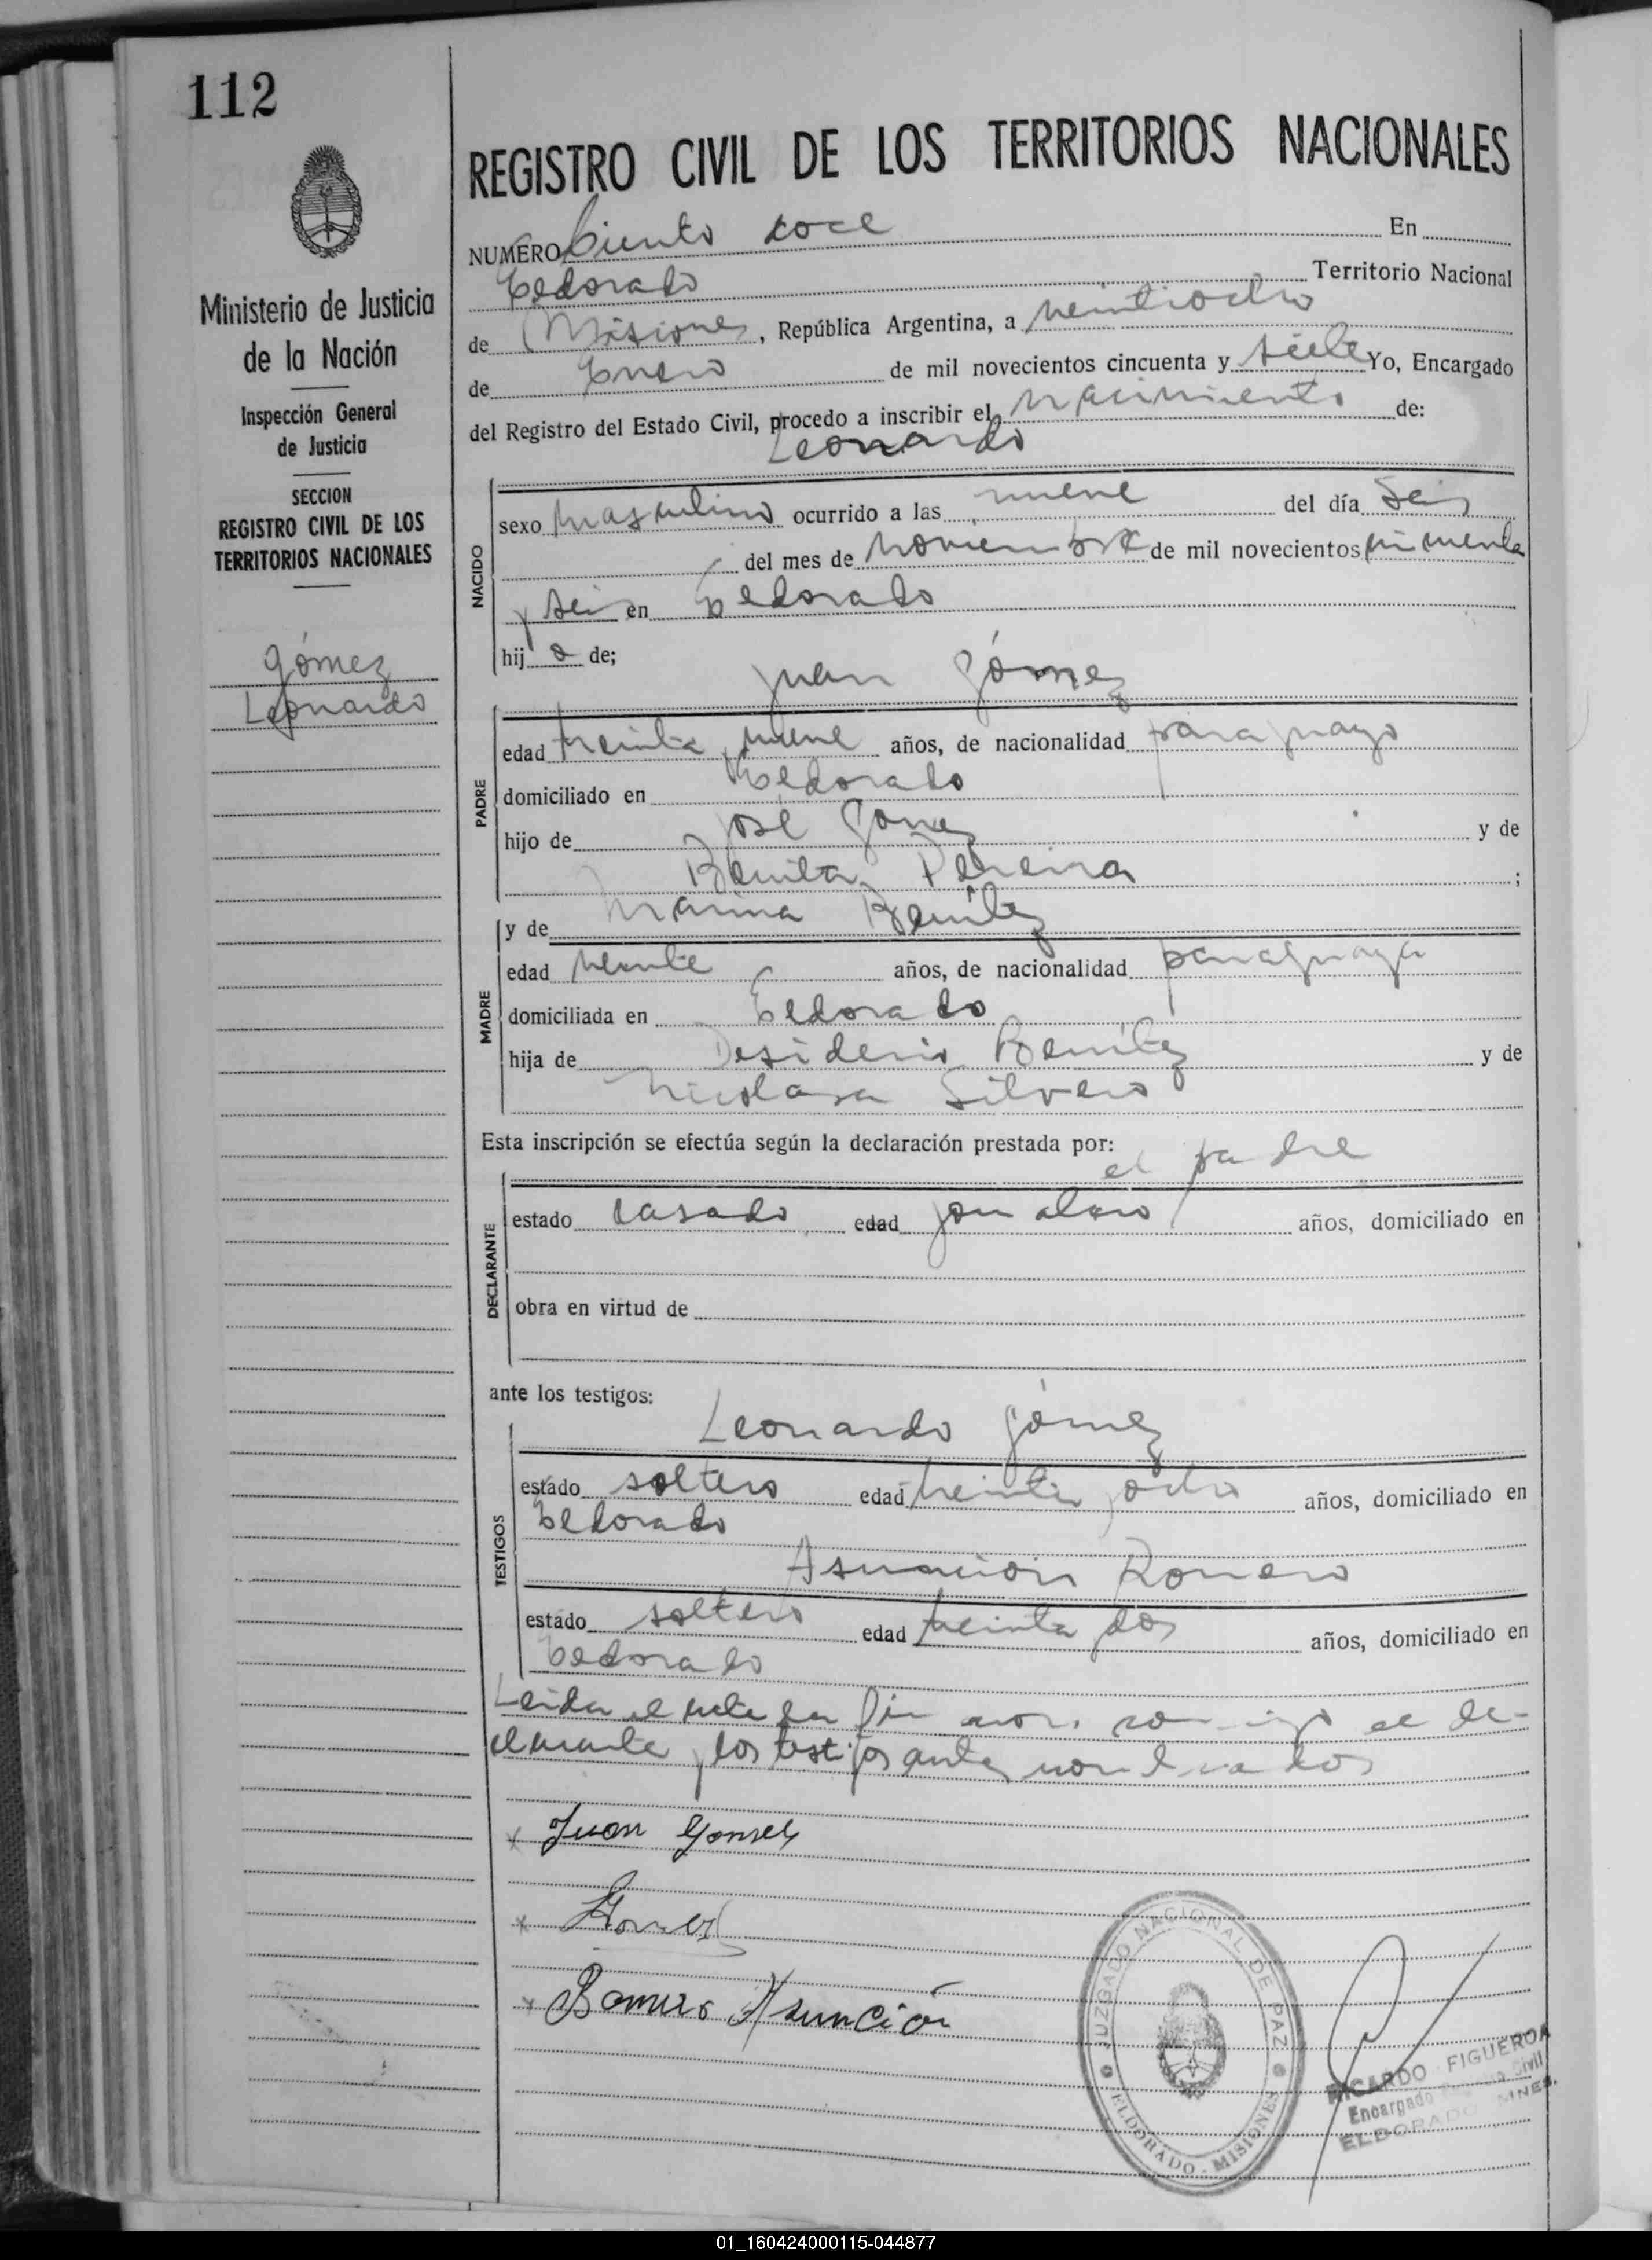 112
REGISTRO CIVIL DE LOS TERRITORIOS NACIONALES
NUMERO Ciento doce En
Eldorado Territorio Nacional
de Misiones, República Argentina, a veintiocho
de Enero de mil novecientos cincuenta y siete Yo, Encargado
del Registro del Estado Civil, procedo a inscribir el nacimiento de:
Leonardo
Ministerio de Justicia
de la Nación
Inspección General
de Justicia
SECCION
REGISTRO CIVIL DE LOS
TERRITORIOS NACIONALES
Gómez
Leonardo
NACIDO
sexo masculino ocurrido a las nueve del día seis
del mes de noviembre de mil novecientos cincuenta
y seis en Eldorado
hijo de;
Juan Gómez
PADRE
edad treinta y nueve años, de nacionalidad paraguayo
domiciliado en Eldorado
hijo de José Gomez y de
Benita Pereira ;
y de Marina Benítez
MADRE
edad veinte años, de nacionalidad paraguaya
domiciliada en Eldorado
hija de Desiderio Benítez y de
Nicolasa Silvero
Esta inscripción se efectúa según la declaración prestada por:
el padre
DECLARANTE
estado casado edad años, domiciliado en
obra en virtud de
ante los testigos:
Leonardo Gómez
TESTIGOS
estado soltero edad y ocho años, domiciliado en
Eldorado
Asunción Romero
estado soltero edad treinta y dos años, domiciliado en
Eldorado
Leida el acta la conmigo el de-
clarante y los testigos antes nombrados
x Juan Gomez
x Gomez
x Romero Asunción
JUZGADO NACIONAL DE PAZ
ELDORADO - MISIONES
RICARDO FIGUEROA
Encargado Registro Civil
ELDORADO MNES.
01_160424000115-044877